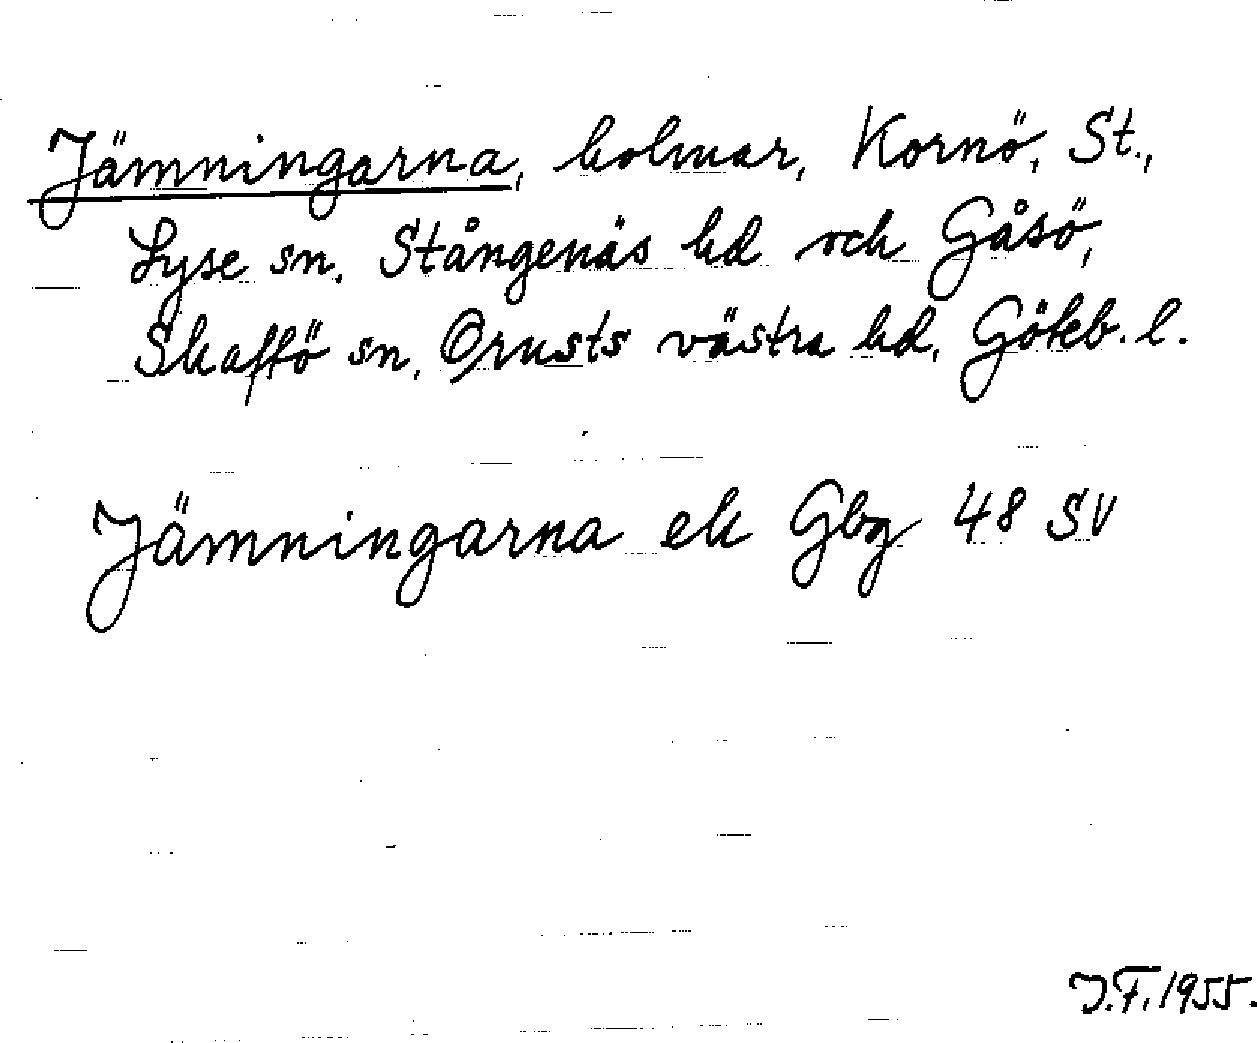 Jämningarna, holmar, Kornö, St.,
Lyse sn. Stångenäs hd och Gåsö,
Skaftö sn, Orusts västra hd, Göteb. l.
Jämningarna ek Gbg 48 SV
J.F. 1955.